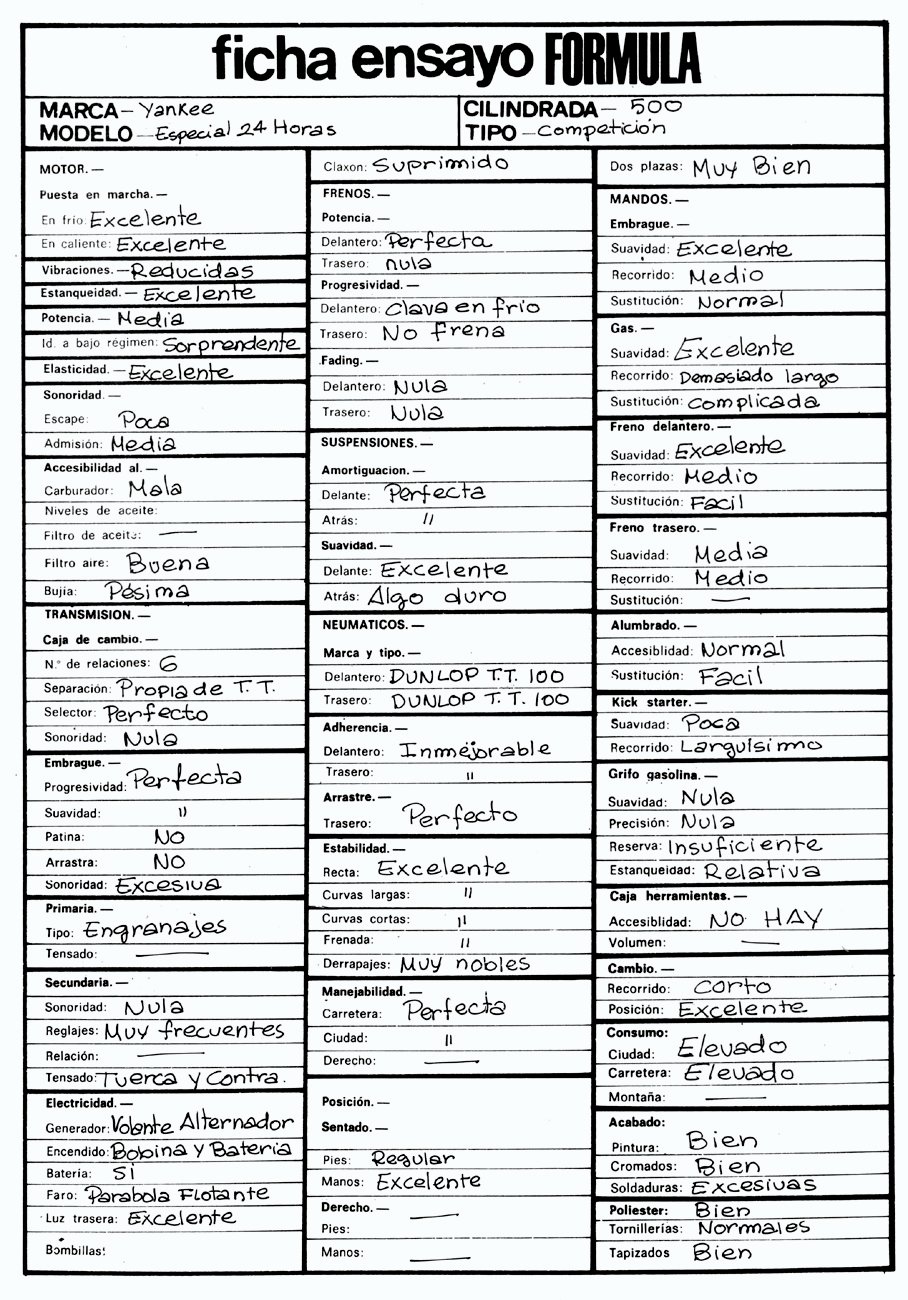 ficha ensayo FORMULA
MARCA— Yankee
MODELO— Especial 24 Horas
CILINDRADA— 500
TIPO— Competición
MOTOR.—
Puesta en marcha.—
En frío: Excelente
En caliente: Excelente
Vibraciones.— Reducidas
Estanqueidad.— Excelente
Potencia.— Media
Id. a bajo régimen: Sorprendente
Elasticidad.— Excelente
Sonoridad.—
Escape: Poca
Admisión: Media
Accesibilidad al.—
Carburador: Mala
Niveles de aceite:
Filtro de aceite: —
Filtro aire: Buena
Bujía: Pésima
TRANSMISION.—
Caja de cambio.—
N.º de relaciones: 6
Separación: Propia de T.T.
Selector: Perfecto
Sonoridad: Nula
Embrague.—
Progresividad: Perfecta
Suavidad: "
Patina: NO
Arrastra: NO
Sonoridad: Excesiva
Primaria.—
Tipo: Engranajes
Tensado: —
Secundaria.—
Sonoridad: Nula
Reglajes: Muy frecuentes
Relación: —
Tensado: Tuerca y Contra.
Electricidad.—
Generador: Volante Alternador
Encendido: Bobina y Bateria
Batería: SI
Faro: Parabola Flotante
Luz trasera: Excelente
Bombillas:
Claxon: Suprimido
FRENOS.—
Potencia.—
Delantero: Perfecta
Trasero: nula
Progresividad.—
Delantero: Clava en frio
Trasero: No frena
Fading.—
Delantero: Nula
Trasero: Nula
SUSPENSIONES.—
Amortiguacion.—
Delante: Perfecta
Atrás: "
Suavidad.—
Delante: Excelente
Atrás: Algo duro
NEUMATICOS.—
Marca y tipo.—
Delantero: DUNLOP T.T. 100
Trasero: DUNLOP T.T. 100
Adherencia.—
Delantero: Inmejorable
Trasero: "
Arrastre.—
Trasero: Perfecto
Estabilidad.—
Recta: Excelente
Curvas largas: "
Curvas cortas: "
Frenada: "
Derrapajes: Muy nobles
Manejabilidad.—
Carretera: Perfecta
Ciudad: "
Derecho: —
Posición.—
Sentado.—
Pies: Regular
Manos: Excelente
Derecho.— —
Pies:
Manos: —
Dos plazas: Muy Bien
MANDOS.—
Embrague.—
Suavidad: Excelente
Recorrido: Medio
Sustitución: Normal
Gas.—
Suavidad: Excelente
Recorrido: Demasiado largo
Sustitución: Complicada
Freno delantero.—
Suavidad: Excelente
Recorrido: Medio
Sustitución: Facil
Freno trasero.—
Suavidad: Media
Recorrido: Medio
Sustitución: —
Alumbrado.—
Accesiblidad: Normal
Sustitución: Facil
Kick starter.—
Suavidad: Poca
Recorrido: Larguísimo
Grifo gasolina.—
Suavidad: Nula
Precisión: Nula
Reserva: Insuficiente
Estanqueidad: Relativa
Caja herramientas.—
Accesiblidad: NO HAY
Volumen: —
Cambio.—
Recorrido: Corto
Posición: Excelente
Consumo:
Ciudad: Elevado
Carretera: Elevado
Montaña: —
Acabado:
Pintura: Bien
Cromados: Bien
Soldaduras: Excesivas
Poliester: Bien
Tornillerías: Normales
Tapizados Bien